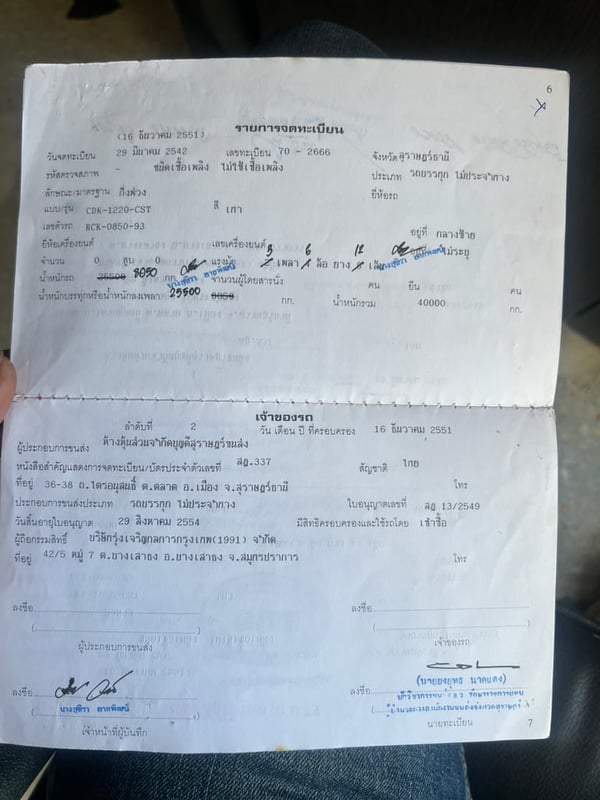 6
รายการจดทะเบียน
(16 ธันวาคม 2551)
วันจดทะเบียน 29 มีนาคม 2542 เลขทะเบียน 70 - 2666 จังหวัด สุราษฎร์ธานี
รหัสตรวจสภาพ - ชนิดเชื้อเพลิง ไม่ใช้เชื้อเพลิง ประเภท รถบรรทุก ไม่ประจำทาง
ลักษณะ/มาตรฐาน กึ่งพ่วง ยี่ห้อรถ
แบบ/รุ่น CDK-1220-CST สี เทา
เลขตัวรถ RCK-0850-93 อยู่ที่ กลางซ้าย
ยี่ห้อเครื่องยนต์ เลขเครื่องยนต์ ไม่ระบุ
จำนวน 0 สูบ 0 แรงม้า 3 เพลา 6 ล้อ ยาง 12 เส้น
น้ำหนักรถ 25500 8050 กก. จำนวนผู้โดยสารนั่ง คน ยืน คน
น้ำหนักบรรทุกหรือน้ำหนักลงเพลา 25500 8050 กก. น้ำหนักรวม 40000 กก.
เจ้าของรถ
ลำดับที่ 2 วัน เดือน ปี ที่ครอบครอง 16 ธันวาคม 2551
ผู้ประกอบการขนส่ง ห้างหุ้นส่วนจำกัดบุญดีสุราษฎร์ขนส่ง
หนังสือสำคัญแสดงการจดทะเบียน/บัตรประจำตัวเลขที่ สฎ.337 สัญชาติ ไทย
ที่อยู่ 36-38 ถ.ไตรอนุสนธิ์ ต.ตลาด อ.เมือง จ.สุราษฎร์ธานี โทร
ประกอบการขนส่งประเภท รถบรรทุก ไม่ประจำทาง ใบอนุญาตเลขที่ สฎ 13/2549
วันสิ้นอายุใบอนุญาต 29 สิงหาคม 2554 มีสิทธิครอบครองและใช้รถโดย เช่าซื้อ
ผู้ถือกรรมสิทธิ์ บริษัทรุ่งเจริญกลการกรุงเทพ(1991) จำกัด
ที่อยู่ 42/5 หมู่ 7 ต.บางเสาธง อ.บางเสาธง จ.สมุทรปราการ โทร
ลงชื่อ ลงชื่อ
( ) ( )
ผู้ประกอบการขนส่ง เจ้าของรถ
ลงชื่อ (นายยงยุทธ นาคแดง)
นายทะเบียน
เจ้าหน้าที่ผู้บันทึก
7